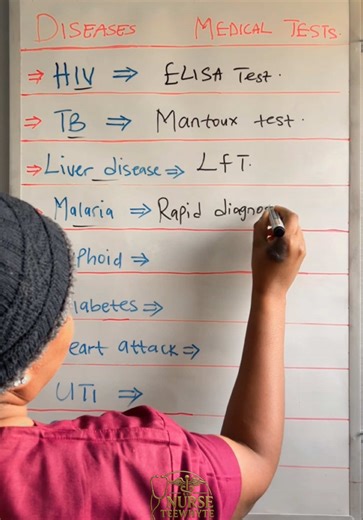 DISEASES MEDICAL TESTS.
⇒ HIV ⇒ ELISA Test.
⇒ TB ⇒ Mantoux test.
⇒ Liver disease ⇒ LfT.
Malaria ⇒ Rapid diagno
phoid ⇒
iabetes ⇒
eart attack ⇒
UTI ⇒
NURSE
TEEWHYTE